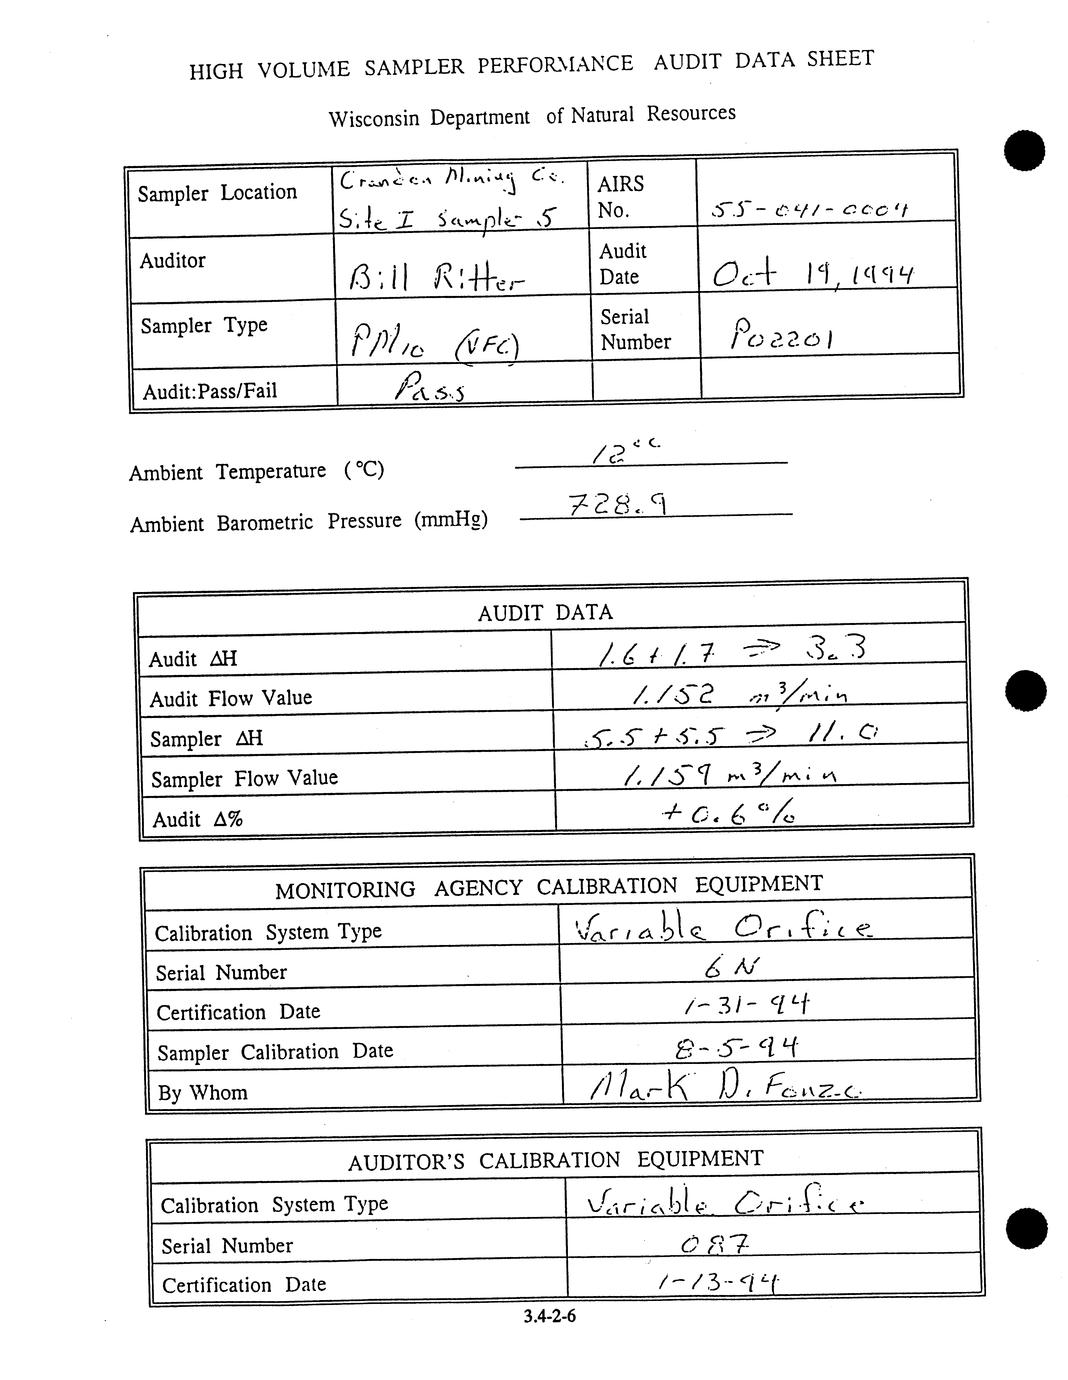 HIGH VOLUME SAMPLER PERFORMANCE AUDIT DATA SHEET
Wisconsin Department of Natural Resources
Sampler Location Crandon Mining Co. Site I Sampler 5 AIRS No. 55-041-0004
Auditor Bill Ritter Audit Date Oct 19, 1994
Sampler Type PM10 (VFC) Serial Number P02201
Audit:Pass/Fail Pass
Ambient Temperature (°C) 12°C
Ambient Barometric Pressure (mmHg) 728.9
AUDIT DATA
Audit ΔH 1.6 + 1.7 ⇒ 3.3
Audit Flow Value 1.152 m³/min
Sampler ΔH 5.5 + 5.5 ⇒ 11.0
Sampler Flow Value 1.159 m³/min
Audit Δ% +0.6%
MONITORING AGENCY CALIBRATION EQUIPMENT
Calibration System Type Variable Orifice
Serial Number 6N
Certification Date 1-31-94
Sampler Calibration Date 8-5-94
By Whom Mark D. Fonzo
AUDITOR'S CALIBRATION EQUIPMENT
Calibration System Type Variable Orifice
Serial Number 087
Certification Date 1-13-94
3.4-2-6